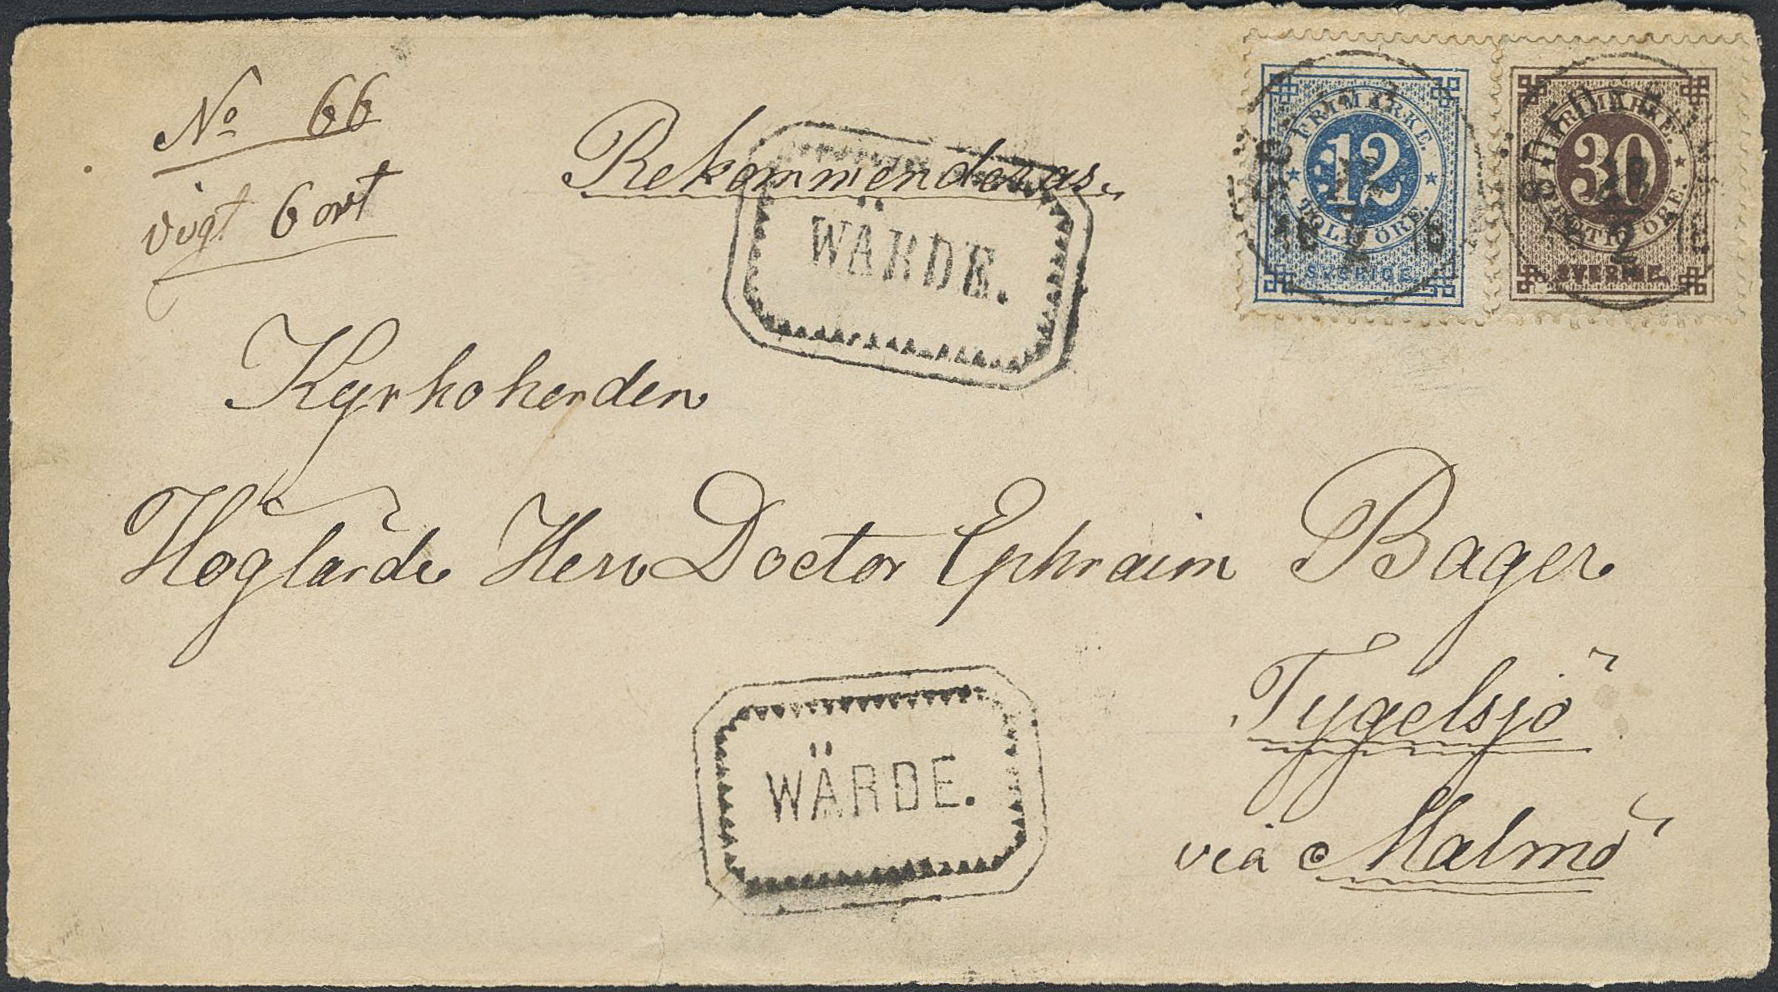 No 66
vigt 6 ort
Rekommenderas.
WÄRDE.
FRIMÄRKE.
12
TOLF ÖRE.
SVERIGE
FRIMÄRKE.
30
TRETTIO ÖRE.
SVERIGE
Kyrkoherden
Höglärde Herr Doctor Ephraim Bager
Tygelsjö
via Malmö
WÄRDE.